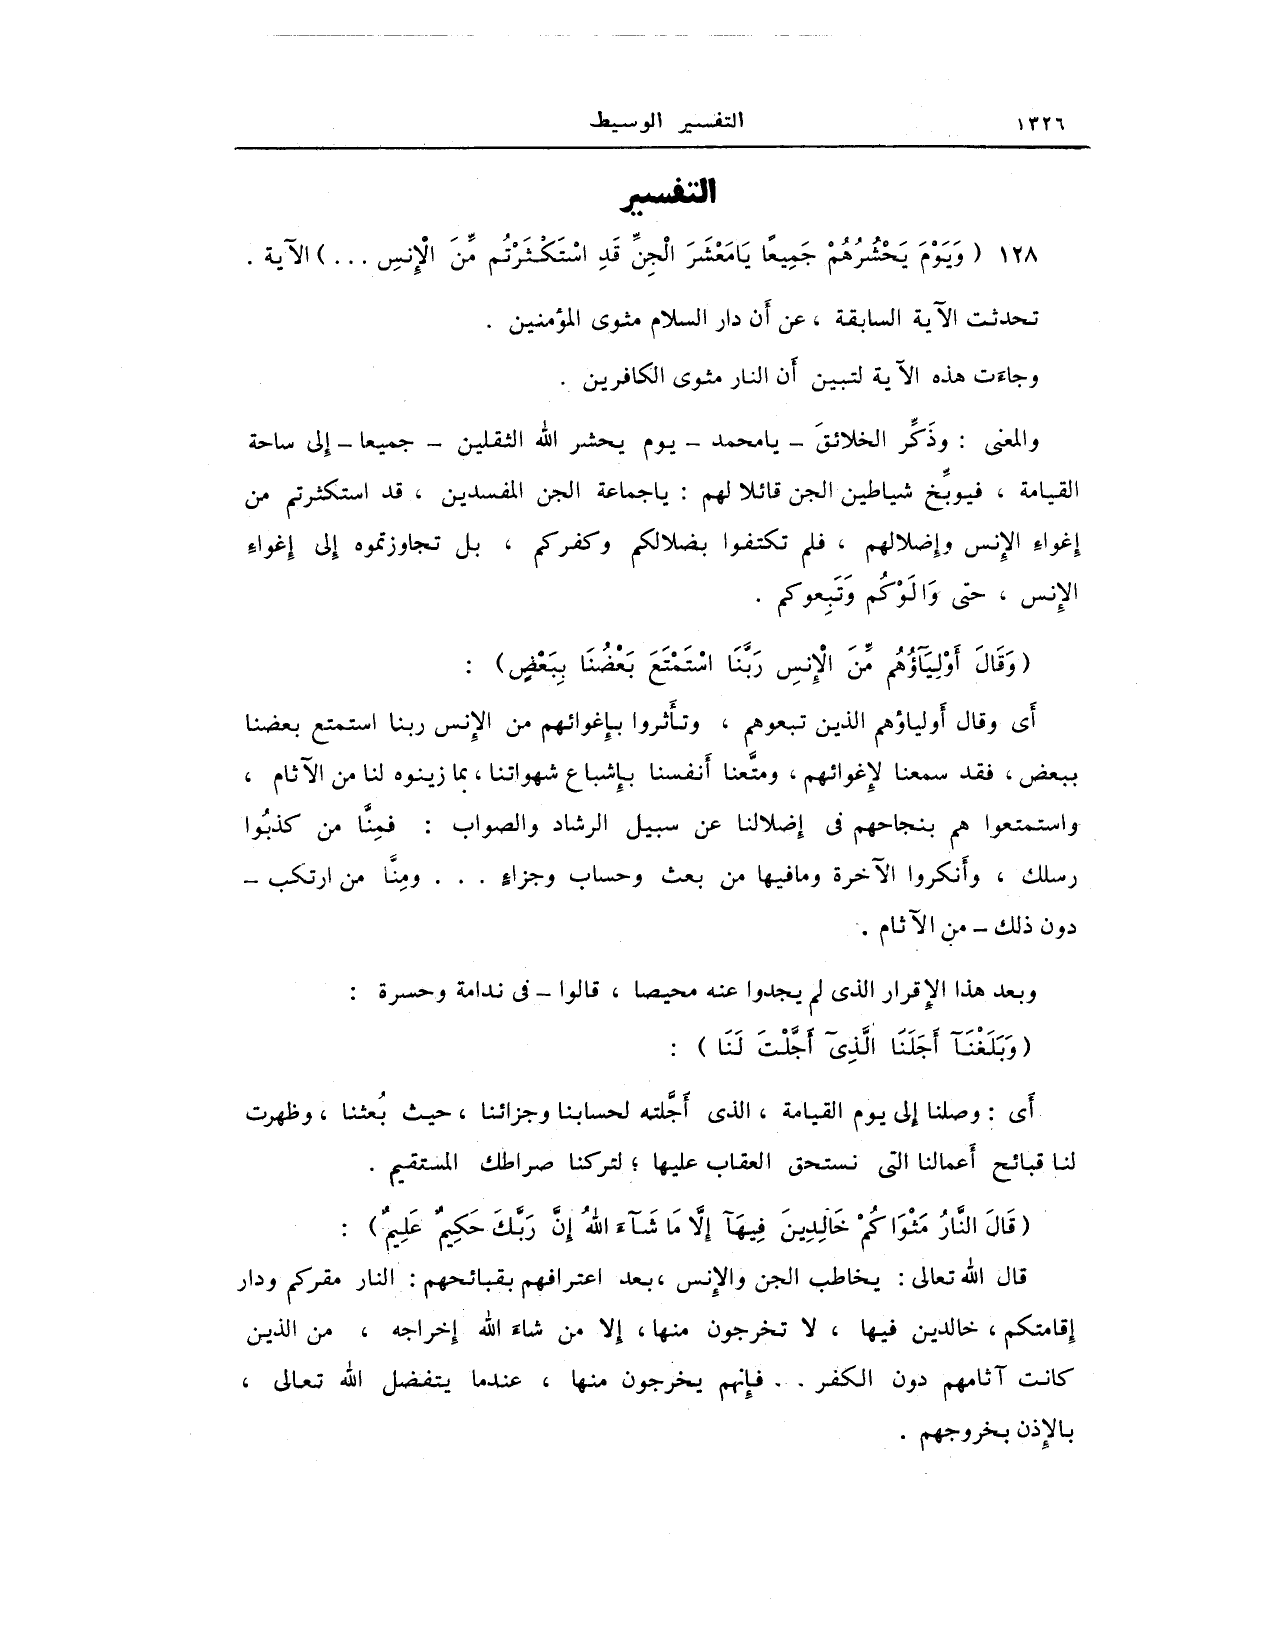 ١٣٢٦ التفسير الوسيط
التفسير
١٢٨ ( وَيَوْمَ يَحْشُرُهُمْ جَمِيعًا يَامَعْشَرَ الْجِنِّ قَدِ اسْتَكْثَرْتُم مِّنَ الْإِنسِ . . . ) الآية .
تحدثت الآية السابقة ، عن أن دار السلام مثوى المؤمنين .
وجاءَت هذه الآية لتبين أن النار مثوى الكافرين .
والمعنى : وذَكِّر الخلائقَ – يامحمد – يوم يحشر الله الثقلين – جميعا – إلى ساحة
القيامة ، فيوبِّخ شياطين الجن قائلا لهم : ياجماعة الجن المفسدين ، قد استكثرتم من
إغواءِ الإنس وإضلالهم ، فلم تكتفوا بضلالكم وكفركم ، بل تجاوزتموه إلى إغواءِ
الإنس ، حتى وَالَوْكُم وَتَبِعوكم .
( وَقَالَ أَوْلِيَآؤُهُم مِّنَ الْإِنسِ رَبَّنَا اسْتَمْتَعَ بَعْضُنَا بِبَعْضٍ ) :
أى وقال أولياؤهم الذين تبعوهم ، وتأثروا بإغوائهم من الإنس ربنا استمتع بعضنا
ببعض ، فقد سمعنا لإغوائهم ، ومتَّعنا أنفسنا بإشباع شهواتنا ، بما زينوه لنا من الآثام ،
واستمتعوا هم بنجاحهم فى إضلالنا عن سبيل الرشاد والصواب : فمِنَّا من كذبُوا
رسلك ، وأنكروا الآخرة ومافيها من بعث وحساب وجزاءٍ . . . ومِنَّا من ارتكب –
دون ذلك – من الآثام .
وبعد هذا الإقرار الذى لم يجدوا عنه محيصا ، قالوا – فى ندامة وحسرة :
( وَبَلَغْنَآ أَجَلَنَا الَّذِىٓ أَجَّلْتَ لَنَا ) :
أى : وصلنا إلى يوم القيامة ، الذى أجَّلته لحسابنا وجزائنا ، حيث بُعثنا ، وظهرت
لنا قبائح أعمالنا التى نستحق العقاب عليها ؛ لتركنا صراطك المستقيم .
( قَالَ النَّارُ مَثْوَاكُمْ خَالِدِينَ فِيهَآ إِلَّا مَا شَآءَ اللهُ إِنَّ رَبَّكَ حَكِيمٌ عَلِيمٌ ) :
قال الله تعالى : يخاطب الجن والإنس ، بعد اعترافهم بقبائحهم : النار مقركم ودار
إقامتكم ، خالدين فيها ، لا تخرجون منها ، إلا من شاءَ الله إخراجه ، من الذين
كانت آثامهم دون الكفر . . فإنهم يخرجون منها ، عندما يتفضل الله تعالى ،
بالإذن بخروجهم .